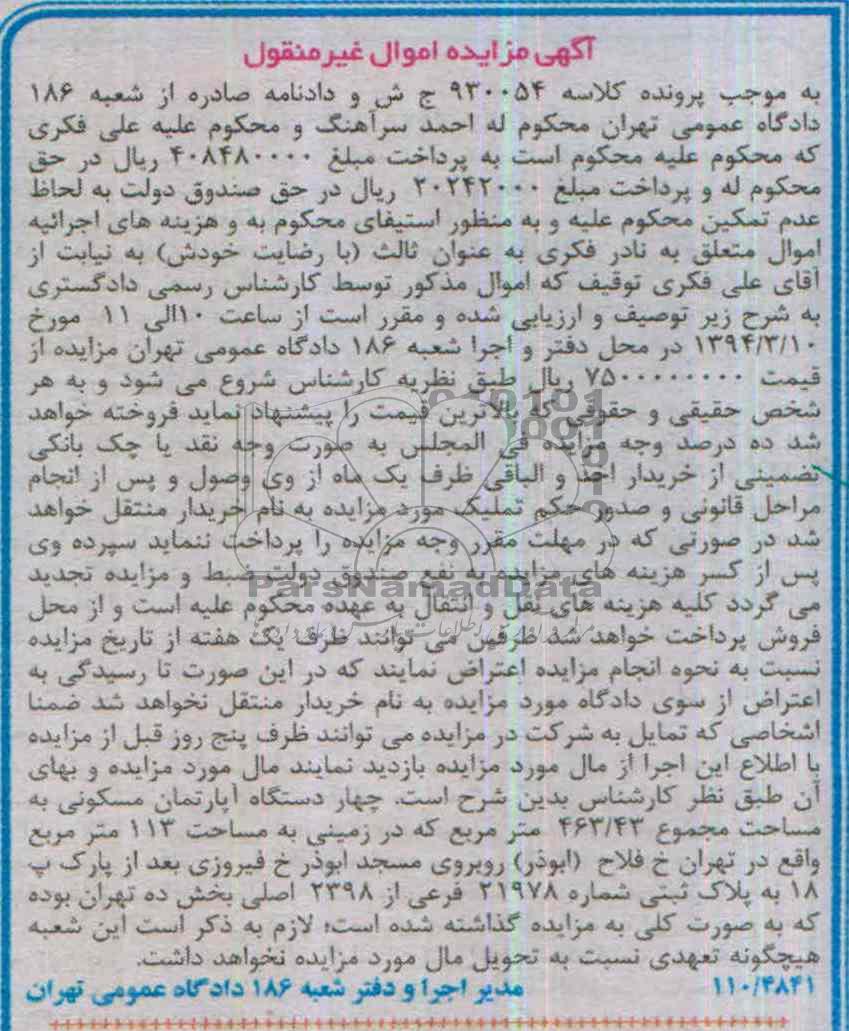 آگهی مزایده اموال غیرمنقول
به موجب پرونده کلاسه ۹۳۰۰۵۴ ج ش و دادنامه صادره از شعبه ۱۸۶
دادگاه عمومی تهران محکوم له احمد سرآهنگ و محکوم علیه علی فکری
که محکوم علیه محکوم است به پرداخت مبلغ ۴۰۸۴۸۰۰۰۰ ریال در حق
محکوم له و پرداخت مبلغ ۲۰۲۴۲۰۰۰ ریال در حق صندوق دولت به لحاظ
عدم تمکین محکوم علیه و به منظور استیفای محکوم به و هزینه های اجرائیه
اموال متعلق به نادر فکری به عنوان ثالث (با رضایت خودش) به نیابت از
آقای علی فکری توقیف که اموال مذکور توسط کارشناس رسمی دادگستری
به شرح زیر توصیف و ارزیابی شده و مقرر است از ساعت ۱۰الی ۱۱ مورخ
۱۳۹۴/۳/۱۰ در محل دفتر و اجرا شعبه ۱۸۶ دادگاه عمومی تهران مزایده از
قیمت ۷۵۰۰۰۰۰۰۰۰ ریال طبق نظریه کارشناس شروع می شود و به هر
شخص حقیقی و حقوقی که بالاترین قیمت را پیشنهاد نماید فروخته خواهد
شد ده درصد وجه مزایده فی المجلس به صورت وجه نقد یا چک بانکی
تضمینی از خریدار اخذ و الباقی ظرف یک ماه از وی وصول و پس از انجام
مراحل قانونی و صدور حکم تملیک مورد مزایده به نام خریدار منتقل خواهد
شد در صورتی که در مهلت مقرر وجه مزایده را پرداخت ننماید سپرده وی
پس از کسر هزینه های مزایده به نفع صندوق دولت ضبط و مزایده تجدید
ParsNamadData
می گردد کلیه هزینه های نقل و انتقال به عهده محکوم علیه است و از محل
فروش پرداخت خواهد شد طرفین می توانند ظرف یک هفته از تاریخ مزایده
نسبت به نحوه انجام مزایده اعتراض نمایند که در این صورت تا رسیدگی به
اعتراض از سوی دادگاه مورد مزایده به نام خریدار منتقل نخواهد شد ضمنا
اشخاصی که تمایل به شرکت در مزایده می توانند ظرف پنج روز قبل از مزایده
با اطلاع این اجرا از مال مورد مزایده بازدید نمایند مال مورد مزایده و بهای
آن طبق نظر کارشناس بدین شرح است. چهار دستگاه آپارتمان مسکونی به
مساحت مجموع ۴۶۳/۴۳ متر مربع که در زمینی به مساحت ۱۱۳ متر مربع
واقع در تهران خ فلاح (ابوذر) روبروی مسجد ابوذر خ فیروزی بعد از پارک پ
۱۸ به پلاک ثبتی شماره ۲۱۹۷۸ فرعی از ۲۳۹۸ اصلی بخش ده تهران بوده
که به صورت کلی به مزایده گذاشته شده است؛ لازم به ذکر است این شعبه
هیچگونه تعهدی نسبت به تحویل مال مورد مزایده نخواهد داشت.
۱۱۰/۴۸۴۱ مدیر اجرا و دفتر شعبه ۱۸۶ دادگاه عمومی تهران